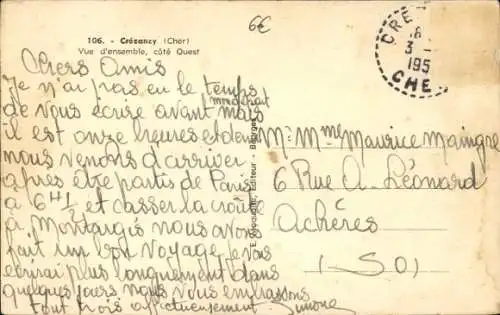 6€
106. - Crézancy (Cher)
Vue d'ensemble, côté Ouest
CRE
3 -
195
CHE
Chers Amis
Je n'ai pas eu le temps
de vous écrire avant mais
maintenant
il est onze heures et demi
nous venons d'arriver
après être partis de Paris
à 6 H ½ et casser la croûte
à Montargis nous avons
fait un bon voyage je vous
écrirai plus longuement dans
quelques jours nous vous embrassons
tout trois affectueusement Simone
Editeur - Bourges
Mr Mme Maurice Maingre
6 Rue A. Léonard
Achères
(S O)